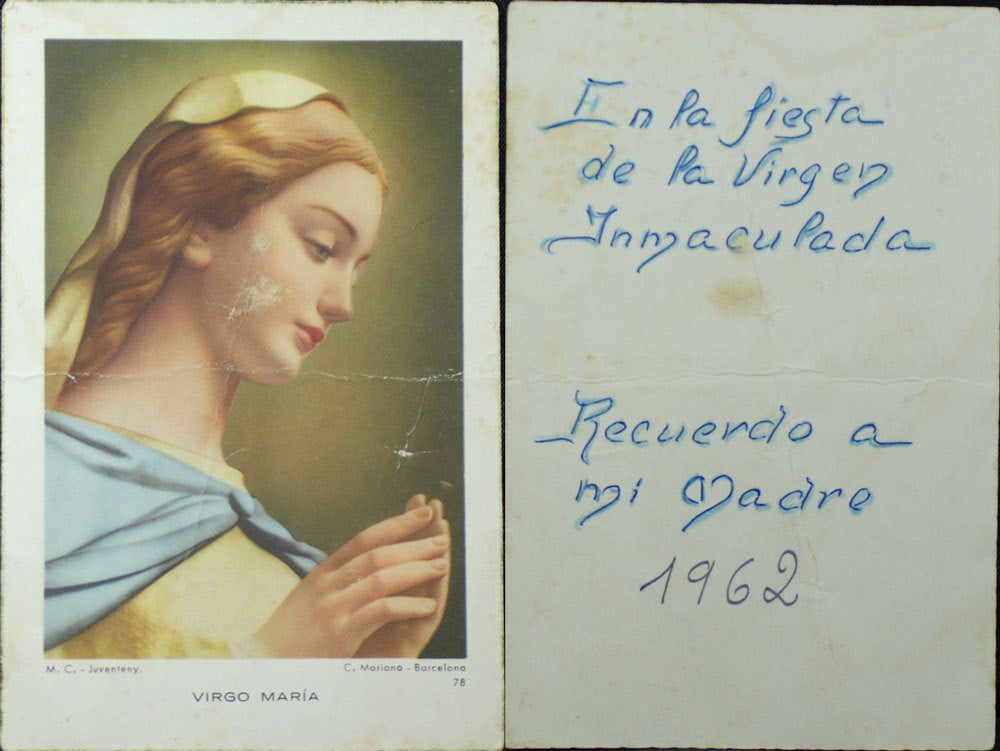 M. C. - Juventeny.
C. Mariana - Barcelona
78
VIRGO MARÍA
En la fiesta
de la Virgen
Inmaculada
Recuerdo a
mi Madre
1962